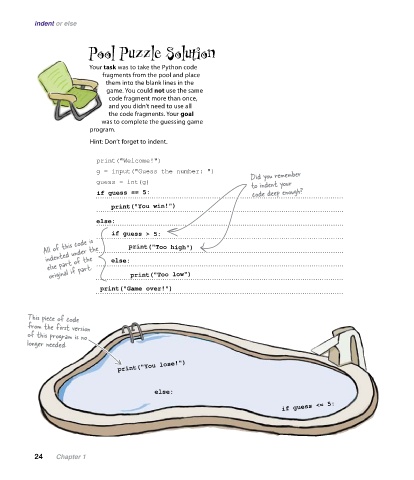 indent or else
Pool Puzzle Solution
Your task was to take the Python code
fragments from the pool and place
them into the blank lines in the
game. You could not use the same
code fragment more than once,
and you didn't need to use all
the code fragments. Your goal
was to complete the guessing game
program.
Hint: Don't forget to indent.
print("Welcome!")
g = input("Guess the number: ")
guess = int(g)
if guess == 5:
print("You win!")
else:
if guess > 5:
print("Too high")
else:
print("Too low")
print("Game over!")
Did you remember
to indent your
code deep enough?
All of this code is
indented under the
else part of the
original if part.
This piece of code
from the first version
of this program is no
longer needed.
print("You lose!")
else:
if guess <= 5:
24 Chapter 1